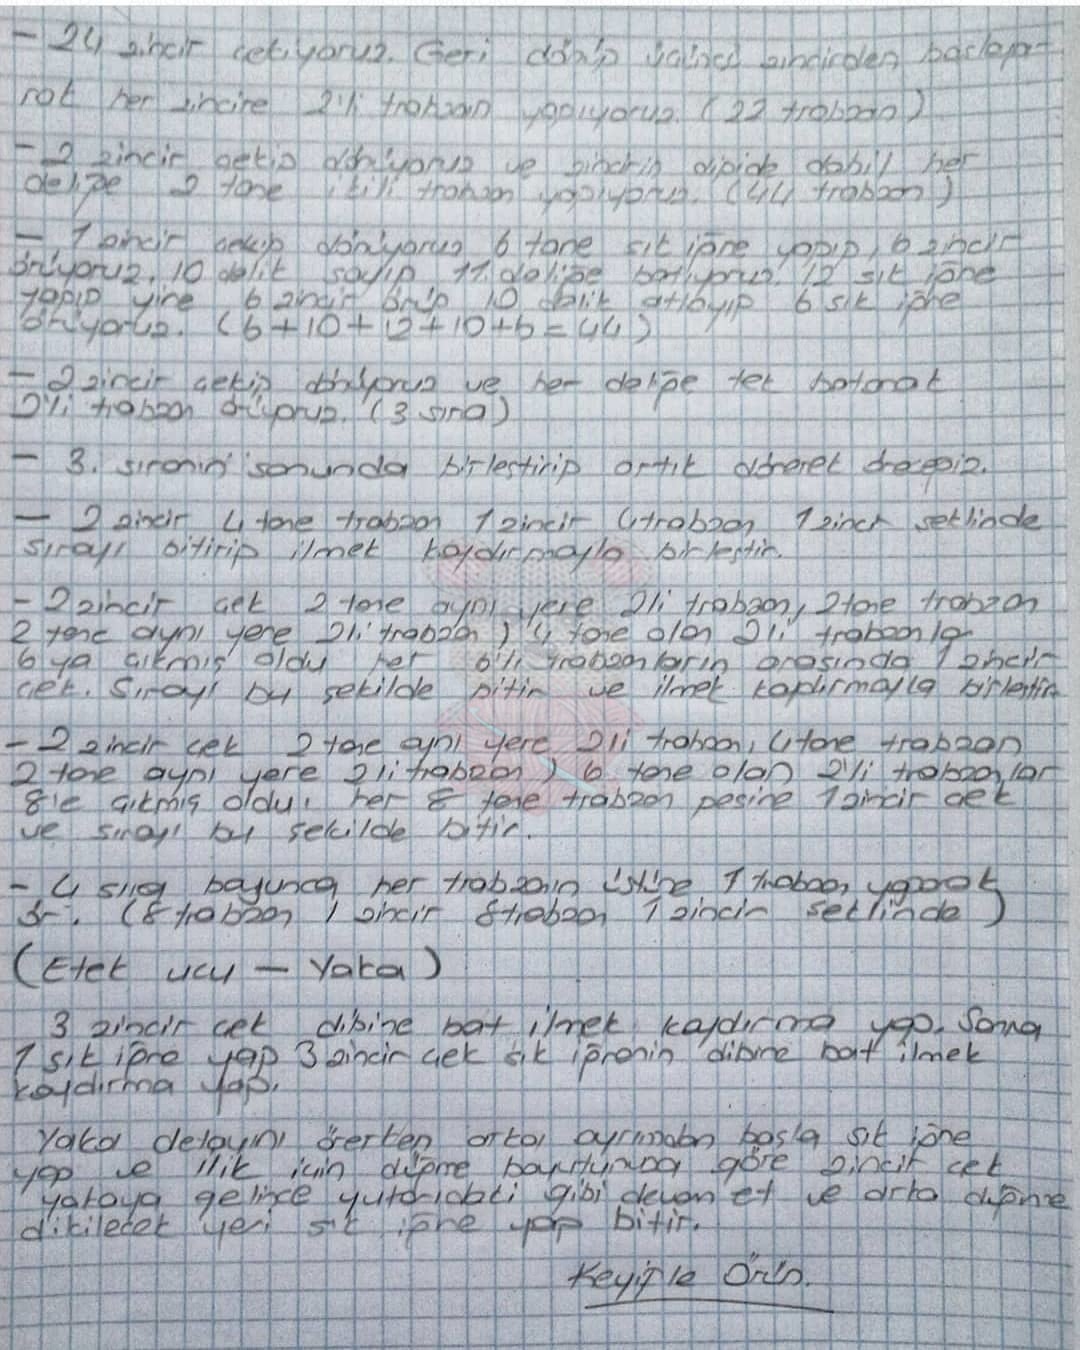 - 24 zincir çekiyoruz. Geri dönüp üçüncü zincirden başlaya-
rak her zincire 2'li trabzan yapıyoruz. (22 trabzan)
- 2 zincir çekip dönüyoruz ve zincirin dibide dahil her
deliğe 2 tane ikili trabzan yapıyoruz. (44 trabzan)
- 1 zincir çekip dönüyoruz 6 tane sık iğne yapıp, 6 zincir
örüyoruz. 10 delik sayıp 11. deliğe batıyoruz. 12 sık iğne
yapıp yine 6 zincir örüp 10 delik atlayıp 6 sık iğne
örüyoruz. (6+10+12+10+6=44)
- 2 zincir çekip dönüyoruz ve her deliğe tek batarak
2'li trabzan örüyoruz. (3 sıra)
- 3. sıranın sonunda birleştirip artık dönerek öreceğiz.
- 2 zincir 4 tane trabzan 1 zincir 4 trabzan, 1 zincir şeklinde
sırayı bitirip ilmek kaydırmayla birleştir.
- 2 zincir çek 2 tane aynı yere 2li trabzan, 2 tane trabzan
2 tane aynı yere 2li trabzan) 4 tane olan 2li trabzanlar
6 ya çıkmış oldu her 6'lı trabzanların arasında 1 zincir
çek. Sırayı bu şekilde bitir ve ilmek kaydırmayla birleştir
- 2 zincir çek 2 tane aynı yere 2li trabzan, 4 tane trabzan
2 tane aynı yere 2li trabzan) 6 tane olan 2'li trabzanlar
8'e çıkmış oldu. her 8 tane trabzan peşine 1 zincir çek
ve sırayı bu şekilde bitir.
- 4 sıra boyunca her trabzanın üstüne 1 trabzan yaparak
ör. (8 trabzan 1 zincir 8 trabzan 1 zincir şeklinde)
(Etek ucu - Yaka)
3 zincir çek dibine bat ilmek kaydırma yap. Sonra
1 sık iğne yap 3 zincir çek sık iğnenin dibine bat ilmek
kaydırma yap.
Yaka detayını örerken arka ayrımdan başla sık iğne
yap ve ilik için düğme boyutuna göre zincir çek
yakaya gelince yukarıdaki gibi devam et ve arka düğme
dikilecek yeri sık iğne yap bitir.
Keyifle Örün.